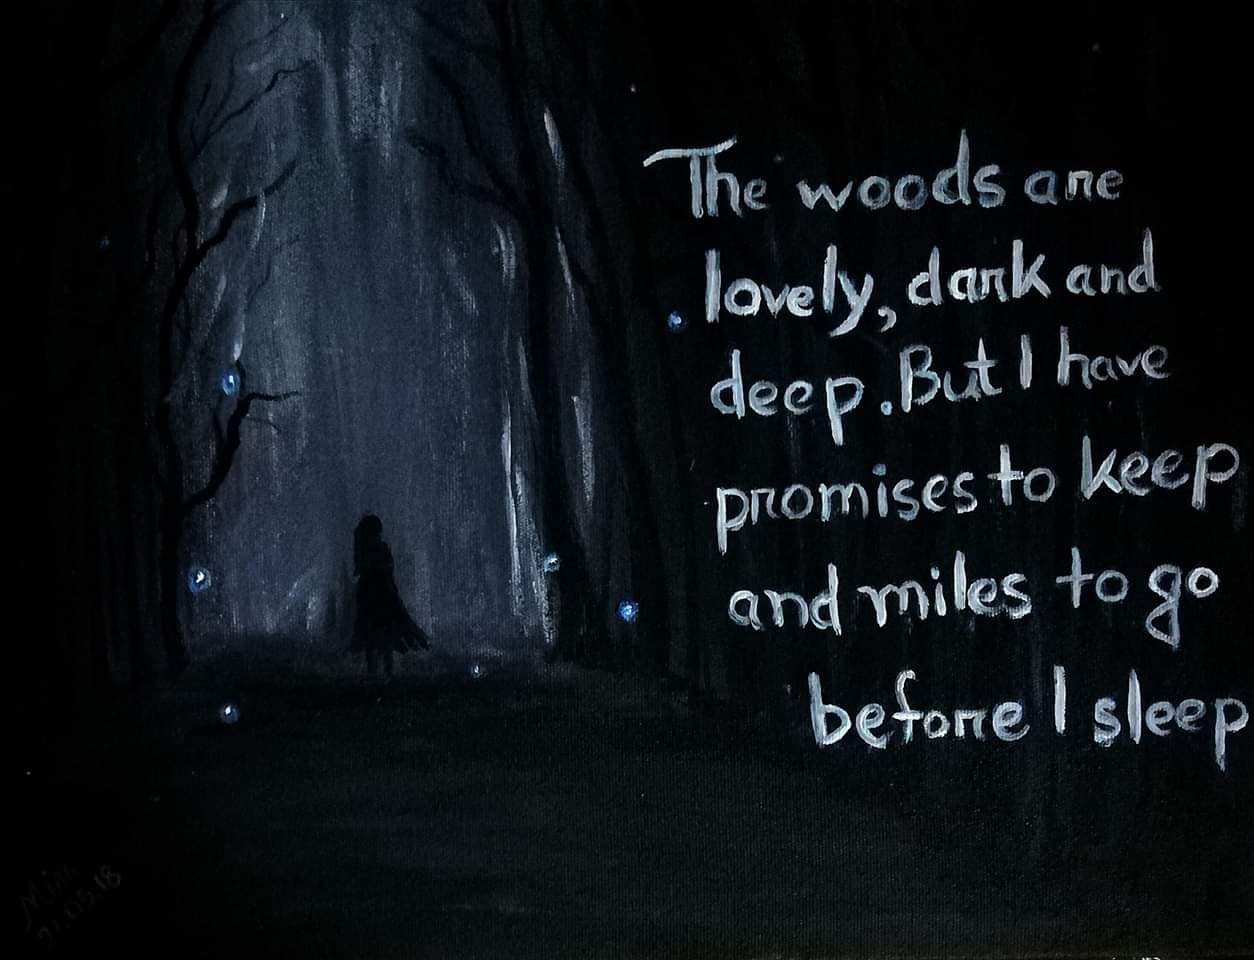 The woods are
lovely, dark and
deep. But I have
promises to keep
and miles to go
before I sleep